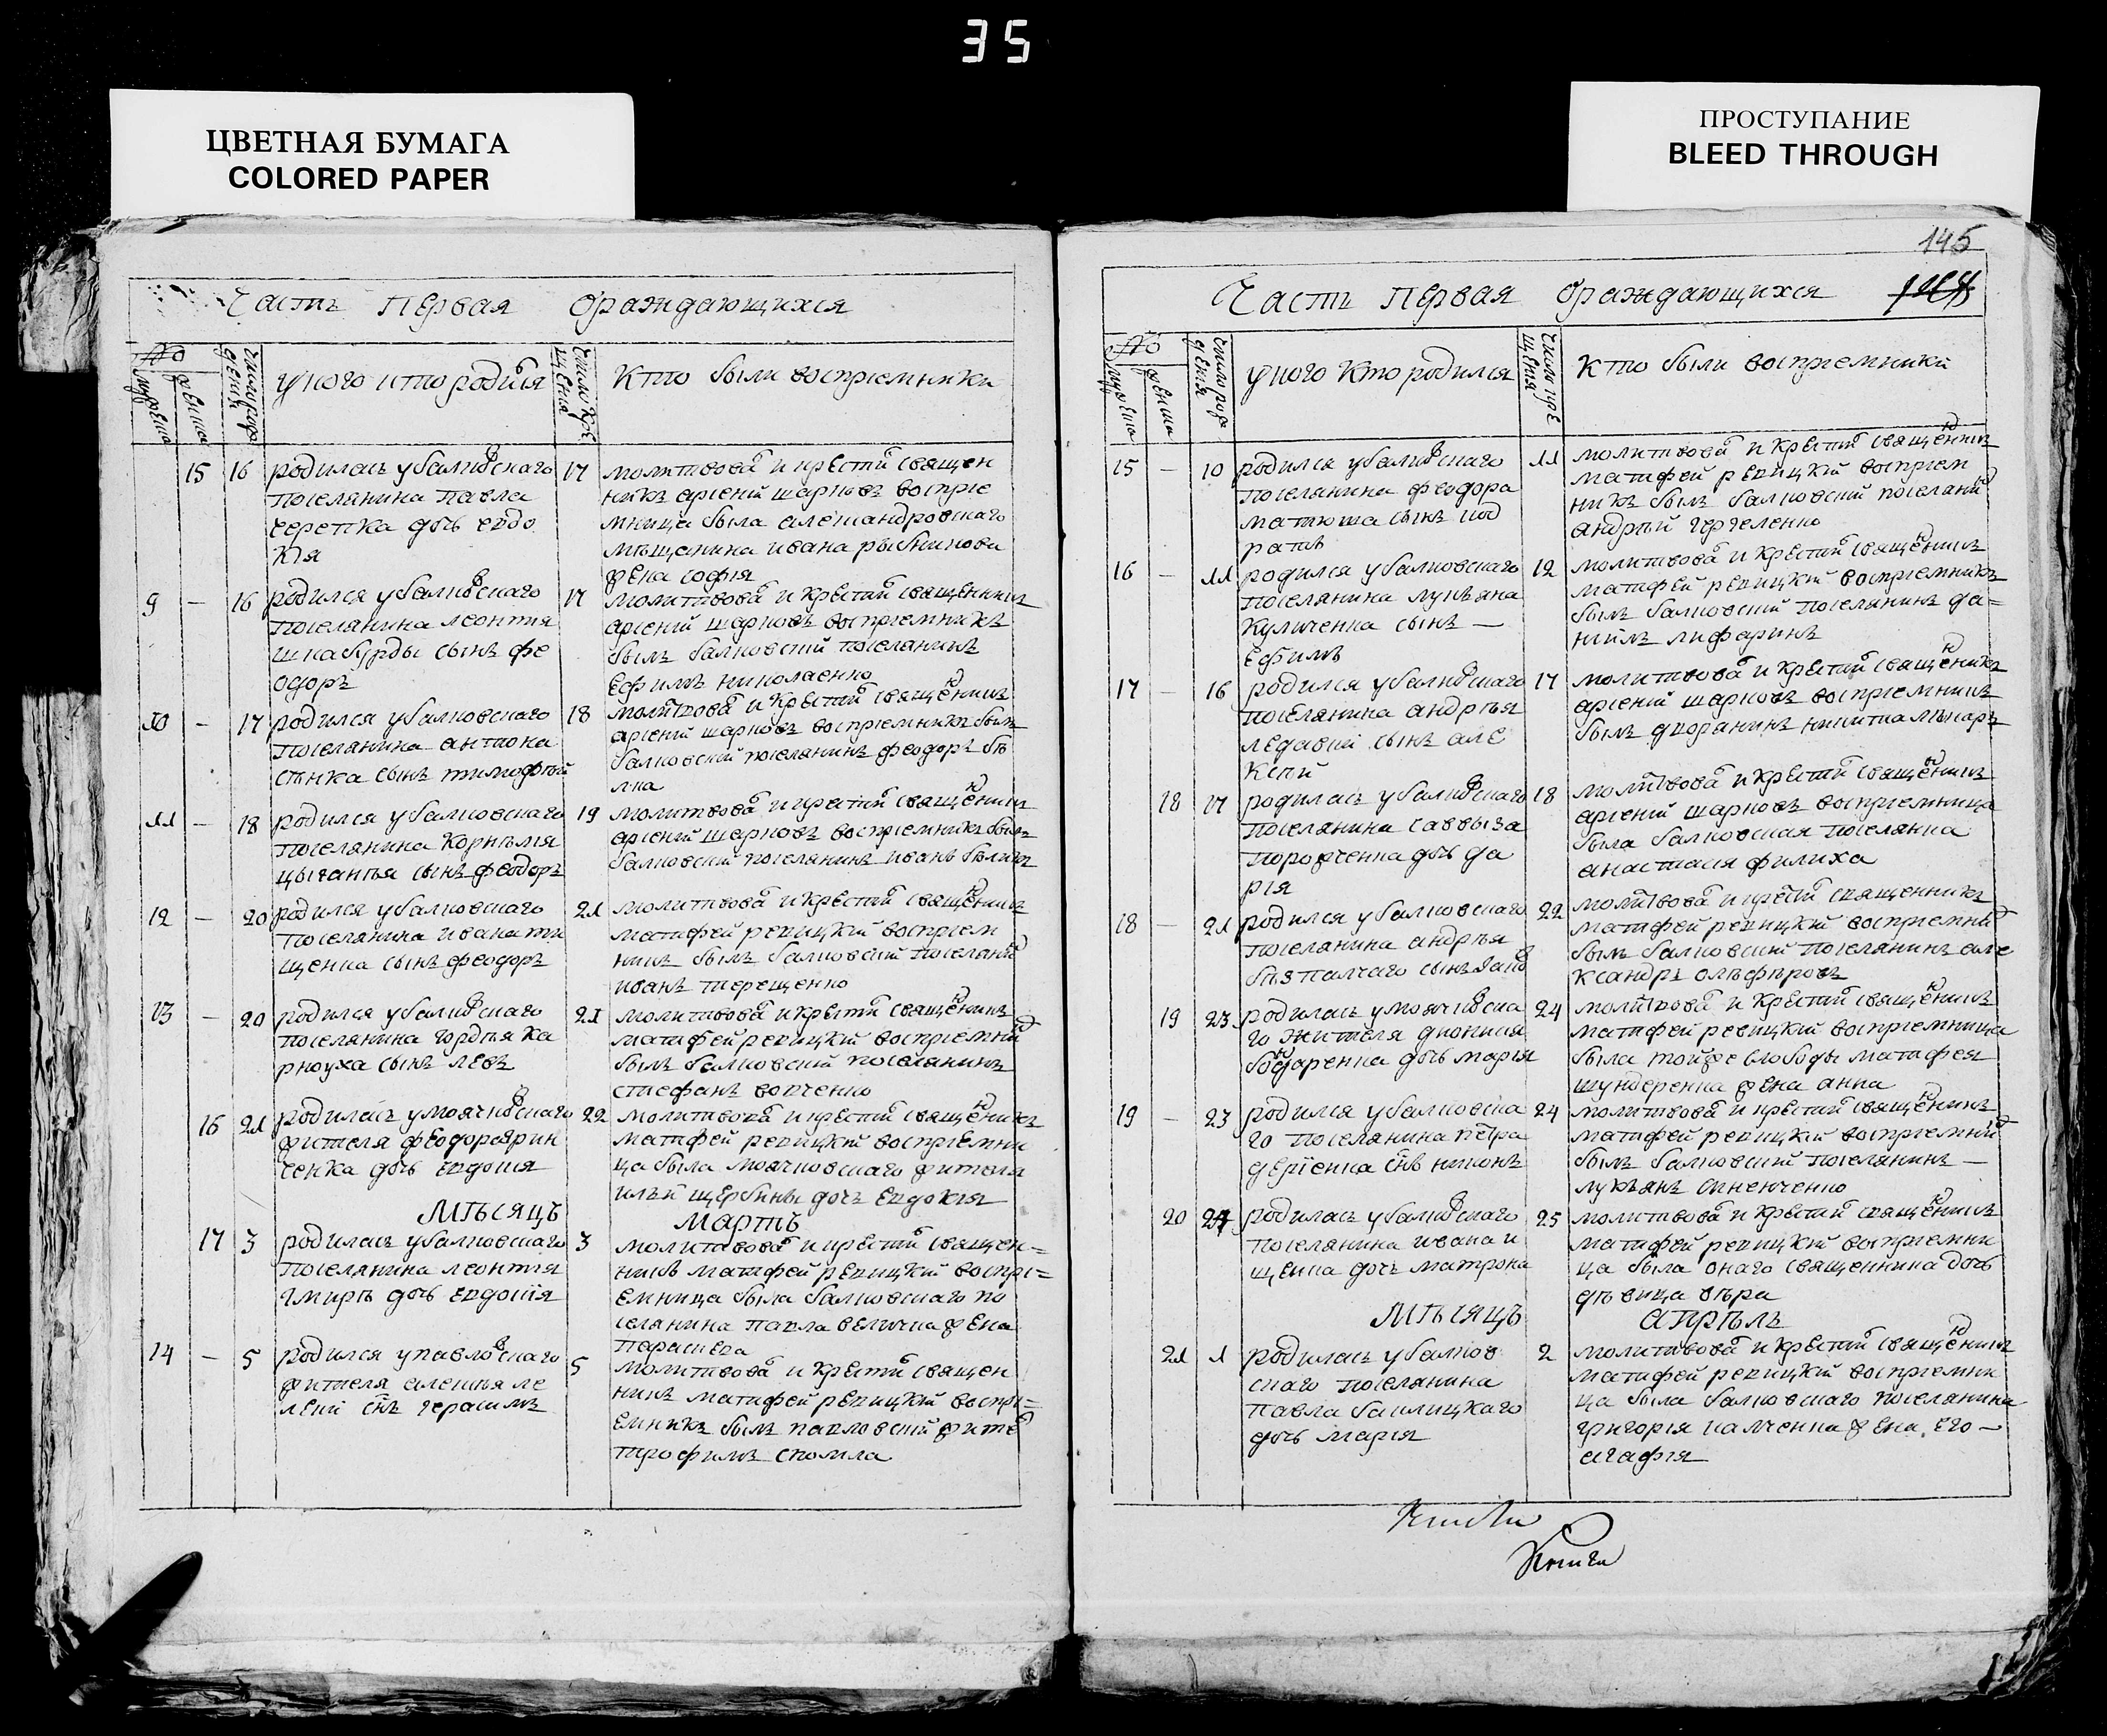 35
ЦВЕТНАЯ БУМАГА
COLORED PAPER
ПРОСТУПАНИЕ
BLEED THROUGH
Часть Первая ораждающихся
№
мужеска
женска
число рож
дения
у кого кто родился
число кре
щения
Кто были восприемники
15 16 родилась убалковскаго
поселянина павла
черепка дочь евдо
кія
17 молитвовалъ и крестилъ священ
никъ арсеній шарковъ воспріе
мница была александровскаго
мѣщанина ивана рыбникова
жена софія
9 — 16 родился убалковскаго
поселянина леонтія
шкабурды сынъ фе
одоръ
17 молитвовалъ и крестилъ священникъ
арсеній шарковъ воспріемникъ
былъ балковскій поселянинъ
ефимъ николаенко
10 — 17 родился убалковскаго
поселянина антона
сѣнка сынъ тимофѣй
18 молитвовалъ и крестилъ священникъ
арсеній шарковъ воспріемникъ былъ
балковскій поселянинъ феодоръ бѣ
лка
11 — 18 родился убалковскаго
поселянина корнѣлія
цыганья сынъ феодоръ
19 молитвовалъ и крестилъ священникъ
арсеній шарковъ воспріемникъ былъ
балковскій поселянинъ иванъ бѣликъ
12 — 20 родился убалковскаго
поселянина ивана ти
щенка сынъ феодоръ
21 молитвовалъ и крестилъ священникъ
матфей ревицкій воспріем
никъ былъ балковскій поселянинъ
иванъ терещенко
13 — 20 родился убалковскаго
поселянина гордѣя ка
рноуха сынъ левъ
21 молитвовалъ и крестилъ священникъ
матфей ревицкій воспріемникъ
былъ балковскій поселянинъ
стефанъ вовченко
16 21 родилась умоячковскаго
жителя феодора ярин
ченка дочь евдокія
22 молитвовалъ и крестилъ священникъ
матфей ревицкій воспріемни
ца была моячковскаго жителя
ильи щербины дочь евдокія
Мѣсяцъ Мартъ
17 3 родилась убалковскаго
поселянина леонтія
гмирѣ дочь евдокія
3 молитвовалъ и крестилъ священ=
никъ матфей ревицкій воспрі=
емница была балковскаго по
селянина павла величка жена
параскева
14 — 5 родился упавловскаго
жителя алексѣя ле
леки сынъ герасимъ
5 молитвовалъ и крестилъ священ
никъ матфей ревицкій воспрі=
емникъ былъ павловскій житель
трофимъ скомла
145
Часть Первая ораждающихся
№
мужеска
женска
число рож
дения
у кого кто родился
число кре
щения
Кто были воспріемники
15 — 10 родился убалковскаго
поселянина феодора
матюша сынъ код
ратъ
11 молитвовалъ и крестилъ священникъ
матфей ревицкій воспріем
никъ былъ балковскій поселянинъ
андрѣй гергеленко
16 — 11 родился убалковскаго
поселянина лукьяна
Куличенка сынъ —
Ефимъ
12 молитвовалъ и крестилъ священникъ
матфей ревицкій воспріемникъ
былъ балковскій поселянинъ да=
ніилъ лиферинъ
17 — 16 родился убалковскаго
поселянина андрѣя
сынъ але
ксѣй
17 молитвовалъ и крестилъ священникъ
арсеній шарковъ воспріемникъ
былъ дворанинъ никита
18 17 родилась убалковскаго
поселянина саввы за
порожченка дочь да
рія
18 молитвовалъ и крестилъ священникъ
арсеній шарковъ воспріемница
была балковская поселянка
анастасія филиха
18 — 21 родился убалковскаго
поселянина андрѣя
безпалчаго сынъ яковъ
22 молитвовалъ и крестилъ священникъ
матфей ревицкій воспріемникъ
былъ балковскій поселянинъ але
ксандръ олѣфѣровъ
19 23 родилась умоячковска
го жителя діонисія
бондаренка дочь марія
24 молитвовалъ и крестилъ священникъ
матфей ревицкій воспріемница
была тойже слободы матфея
шундеренка жена анна
19 — 23 родился убалковска
го поселянина петра
деріенка сынъ никонъ
24 молитвовалъ и крестилъ священникъ
матфей ревицкій воспріемникъ
былъ балковскій поселянинъ —
лукьянъ синенченко
20 24 родилась убалковскаго
поселянина ивана и
щенка дочь матрона
25 молитвовалъ и крестилъ священникъ
матфей ревицкій воспріемни
ца была онаго священника дочь
дѣвица вѣра
Мѣсяцъ апрѣль
21 1 родилась убалков
скаго поселянина
павла басилицкаго
дочь марія
2 молитвовалъ и крестилъ священникъ
матфей ревицкій воспріемни
ца была балковскаго поселянина
григорія калченка жена его —
агафія